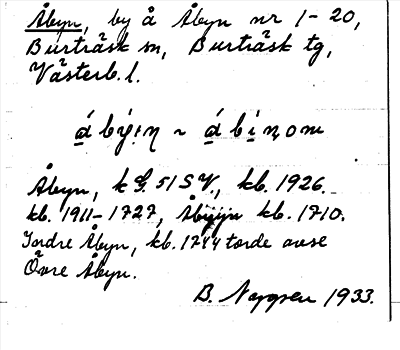 Åbyn, by å Åbyn nr 1-20,
Burträsk sn, Burträsk tg,
Västerb. l.
Åbyn, k 51 SV., kb. 1926.
kb. 1911-1727, kb. 1710.
Jordre Åbyn, kb. 1744 torde avse
Övre Åbyn.
B. Nygren 1933.